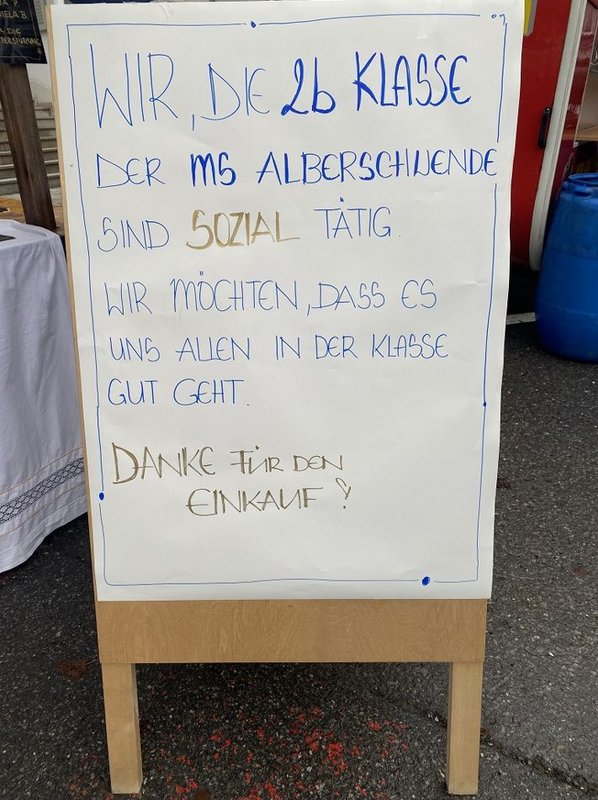 WIR, DIE 2b KLASSE
DER MS ALBERSCHWENDE
SIND SOZIAL TÄTIG.
WIR MÖCHTEN, DASS ES
UNS ALLEN IN DER KLASSE
GUT GEHT.
DANKE FÜR DEN
EINKAUF!